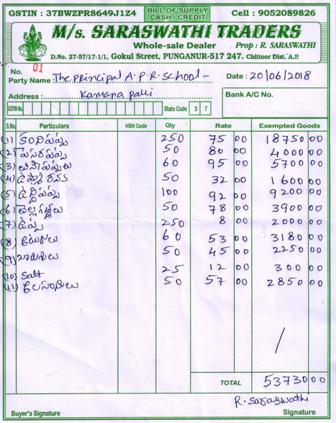 GSTIN : 37BWZPR8649J1Z4 BILL OF SUPPLY CASH / CREDIT Cell : 9052089826
M/s. SARASWATHI TRADERS
Whole-sale Dealer Prop : R. SARASWATHI
D.No. 27-57/17-1/1, Gokul Street, PUNGANUR-517 247. Chittoor Dist. A.P.
No. 01
Party Name The principal A.P.R. School - Date : 20/06/2018
Address : Kamana palli Bank A/C No.
GSTIN No. State Code 3 7
S.No Particulars HSN Code Qty Rate Exempted Goods
(1) కందిపప్పు 250 75 00 18750 00
(2) పెసరపప్పు 50 80 00 4000 00
(3) 60 95 00 5700 00
(4) 50 32 00 1600 00
(5) ఉద్దిపప్పు 100 92 00 9200 00
(6) 50 78 00 3900 00
(7) ఉప్పు 250 8 00 2000 00
(8) 60 53 00 3180 00
(9) 50 45 00 2250 00
(10) Salt 25 12 00 300 00
(11) 50 57 00 2850 00
TOTAL 53730 00
R. Saraswathi
Buyer's Signature Signature